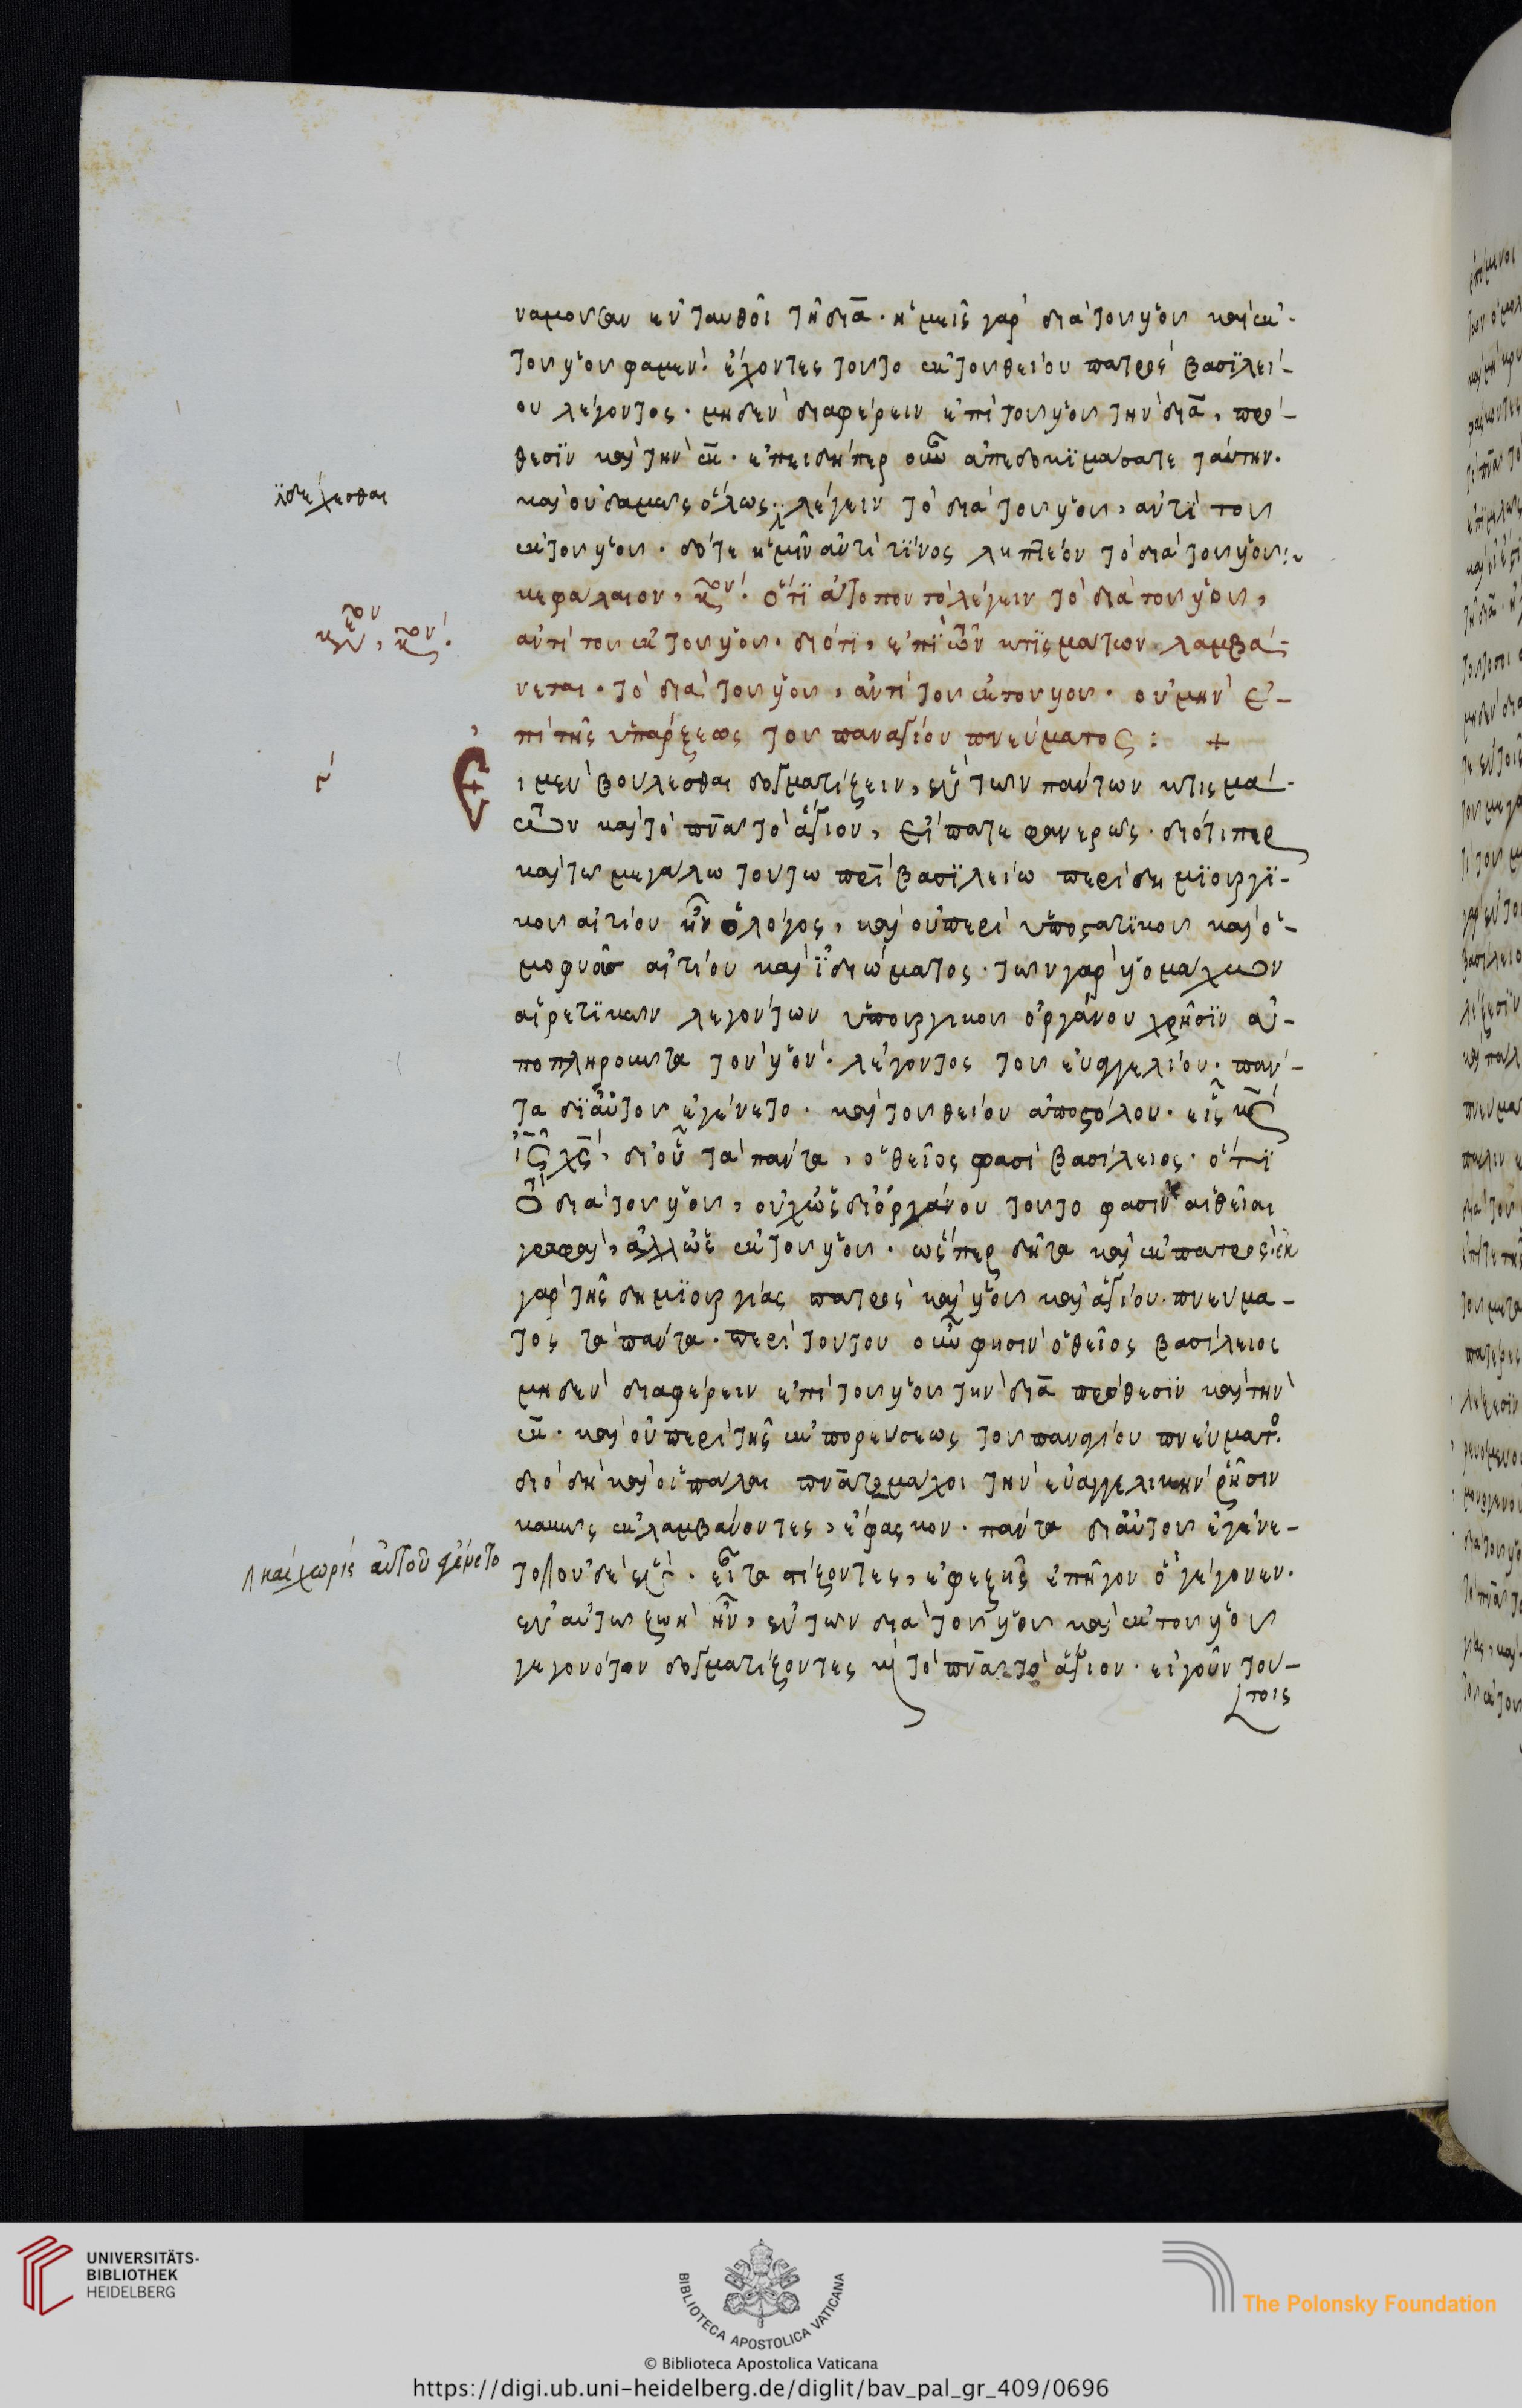 ναμουσαν ἐν ταυθοῖ τῆ διὰ. ἡμεῖς γὰρ διὰ τοῦ υἱοῦ καὶ ἐκ
τοῦ υἱοῦ φαμέν. ἔχοντες τοῦτο ἐκ τοῦ θείου πατρὸς βασϊλεί-
ου λέγοντος. μηδὲν διαφέρειν ἐπὶ τοῦ υἱοῦ τὴν διὰ, πρό-
θεσϊν καὶ τὴν ἐκ. ἐπειδήπερ οὖν ἀπεδοκϊμάσατε ταύτην.
ϊδέχεσθαι
καὶ οὐδαμῶς ὅλως λέγειν τὸ διὰ τοῦ υἱοῦ, ἀντὶ τοῦ
ἐκ τοῦ υἱοῦ. δότε ἡμῖν ἀντὶ τίνος ληπτέον τὸ διὰ τοῦ υἱοῦ:
κεφάλαιον, κζον. ὅτϊ ἄτοπον τὸ λέγειν τὸ διὰ τοῦ υἱοῦ,
ἀντὶ τοῦ ἐκ τοῦ υἱοῦ. διότϊ, ἐπὶ τῶν κτϊσμάτων λαμβά-
νεται. τὸ διὰ τοῦ υἱοῦ, ἀντὶ τοῦ ἐκ τοῦ υἱοῦ. οὐ μὴν ἐ-
πὶ τῆς ὑπάρξεως τοῦ παναγίου πνεύματος: +
Εἰ μὲν βούλεσθαι δογματίζειν, ἓν τῶν πάντων κτισμά-
των καὶ τὸ πνα τὸ ἅγιον, εἴπατε φανερῶς. διότιπερ
καὶ τῶ μεγάλω τούτω πρι βασϊλείω περὶ δημϊουργϊ-
κοῦ αἰτίου ἦν ὁ λόγος, καὶ οὐ περὶ ὑποστατϊκοῦ καὶ ὁ-
μοφυοῦς αἰτίου καὶ ἰδιώματος. τῶν γὰρ υἱομάχων
αἱρετϊκῶν λεγόντων ὑπουργικοῦ ὀργάνου χρῆσϊν ἀ-
ποπληροῦντα τὸν υἱόν. λέγοντος τοῦ εὐαγγελίου. πάν-
τα δϊ αὐτοῦ ἐγένετο. καὶ τοῦ θείου ἀποστόλου. εἷς κς
ις χς, δι οὗ τὰ πάντα, ὁ θεῖος φασὶ βασίλειος. ὅτϊ
τὸ διὰ τοῦ υἱοῦ, οὐχ ὡς δι ὀργάνου τοῦτο φασὶν αἱ θεῖαι
γραφαὶ, ἀλλ ὡς ἐκ τοῦ υἱοῦ. ὥσπερ δῆτα καὶ ἐκ πατρός. ἐκ
γὰρ τῆς δημϊουργίας πατρὸς καὶ υἱοῦ καὶ ἁγίου πνεύμα-
τος τὰ πάντα. περὶ τούτου οὖν φησὶν ὁ θεῖος βασίλειος
μηδὲν διαφέρειν ἐπὶ τοῦ υἱοῦ τὴν διὰ πρόθεσϊν καὶ τὴν
ἐκ. καὶ οὐ περὶ τῆς ἐκπορεύσεως τοῦ παναγίου πνεύματο.
διὸ δὴ καὶ οἱ πάλαι πνατομάχοι τὴν εὐαγγελικὴν ῥῆσιν
κακῶς ἐκλαμβάνοντες, ἔφασκον. πάντα δι αὐτοῦ ἐγένε-
καὶ χωρὶς αὐτοῦ ἐγένετο
το οὐδὲ ἕν. εἶτα στίζοντες, ἐφεξῆς ἐπῆγον ὃ γέγονεν.
ἐν αὐτῶ ζωὴ ἦν, ἓν τῶν διὰ τοῦ υἱοῦ καὶ ἐκ τοῦ υἱοῦ
γεγονότων δογματίζοντες κ τὸ πνα τὸ ἅγιον. εἰ γοῦν τού-
τοις
UNIVERSITÄTS-
BIBLIOTHEK
HEIDELBERG
BIBLIOTECA APOSTOLICA VATICANA
The Polonsky Foundation
© Biblioteca Apostolica Vaticana
https://digi.ub.uni-heidelberg.de/diglit/bav_pal_gr_409/0696